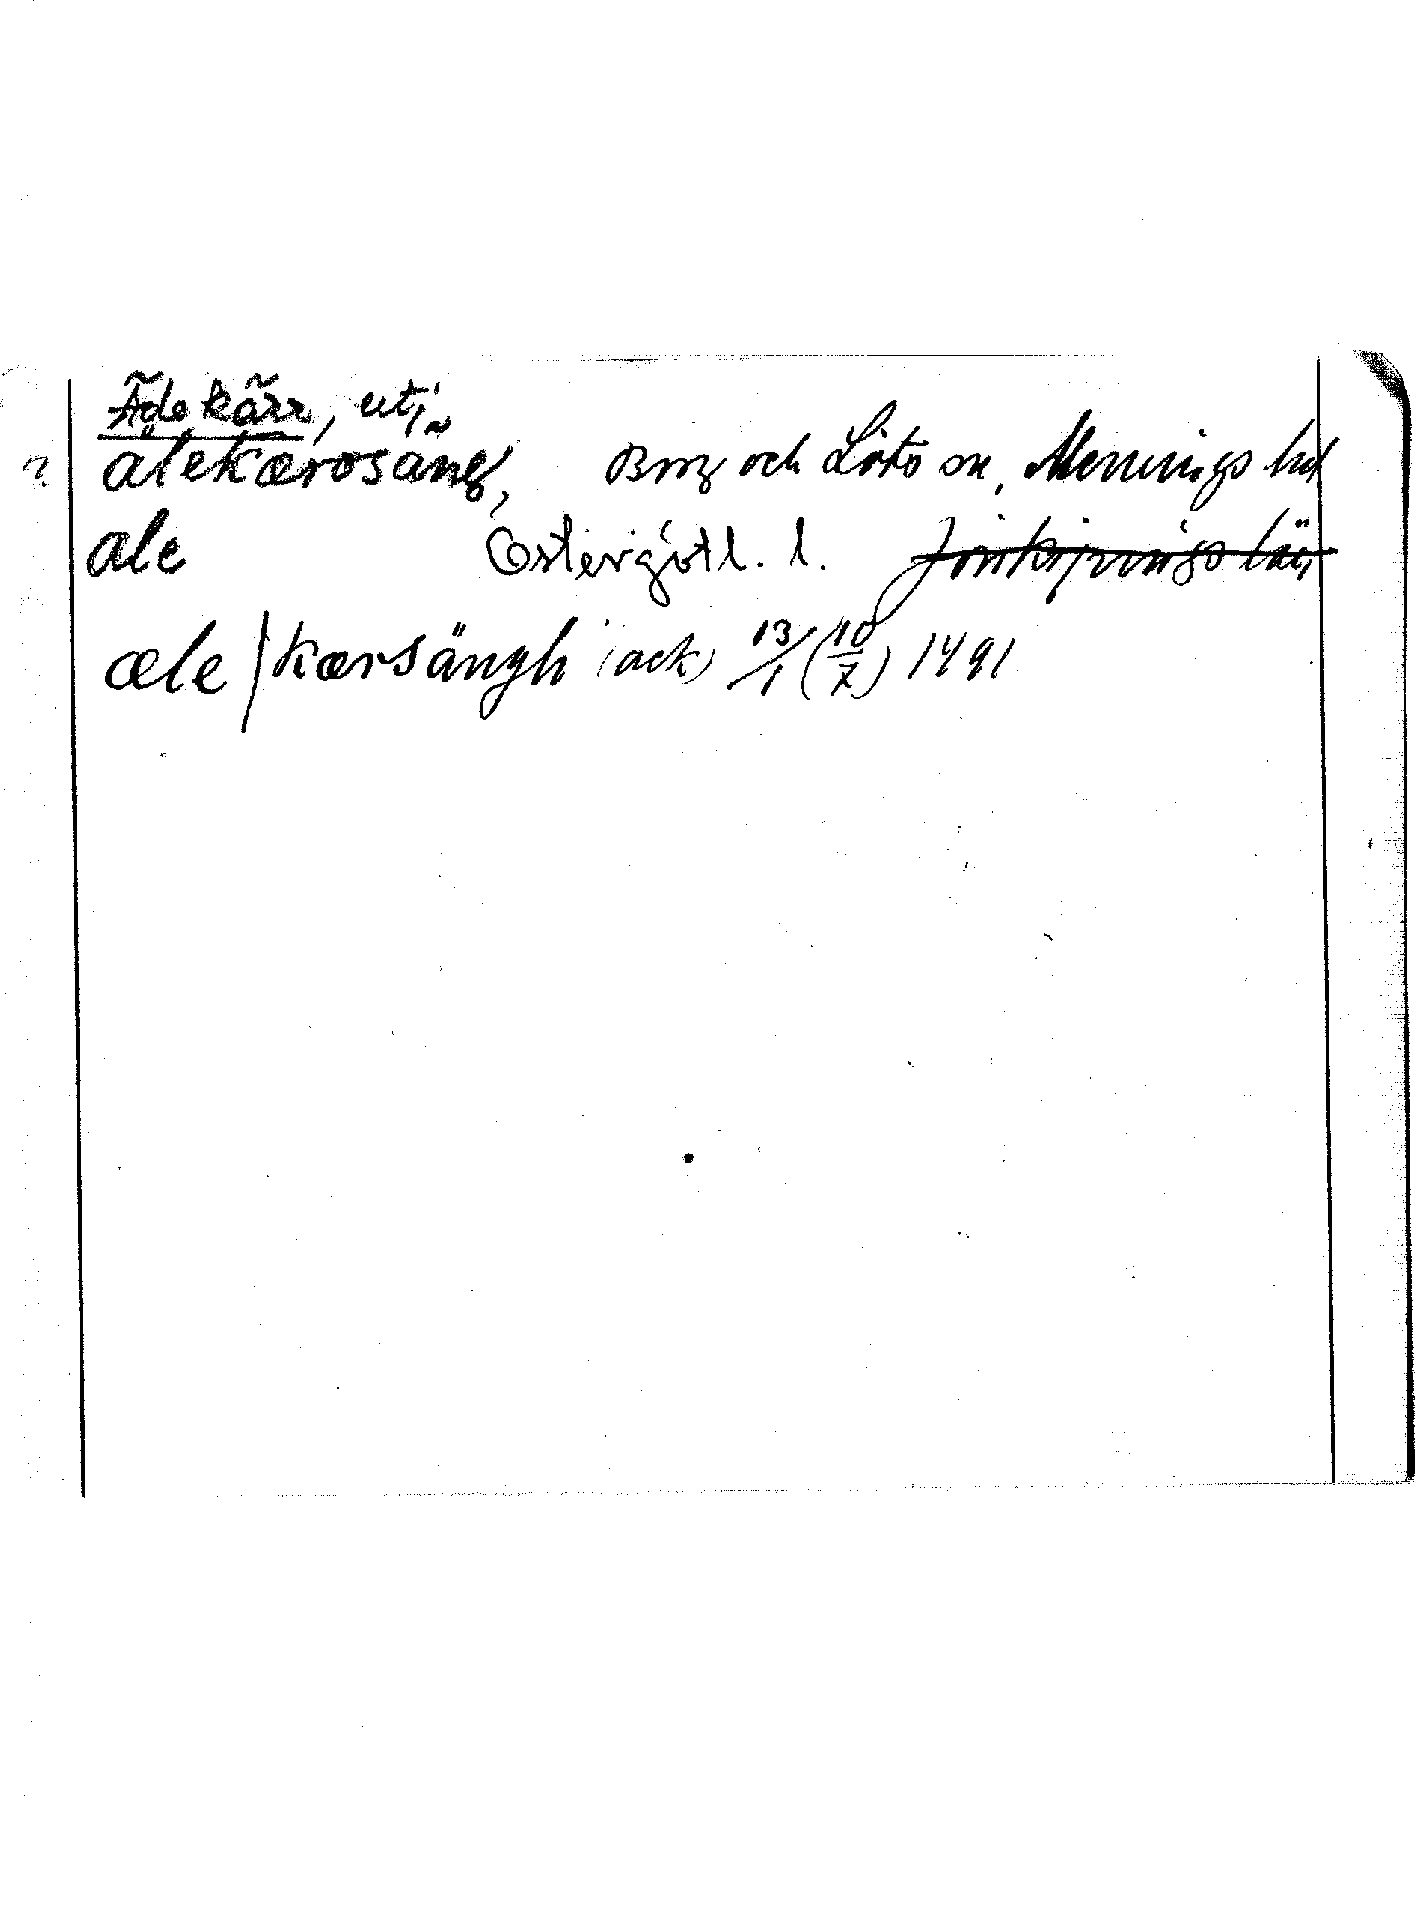 Ädekärr, uti
? älekærosäng, Borg och Löts sn, Memmings hd
ale Östergötl. l. Jönköpings län
æle/kærsängh (ack) 13/1 (10/7) 1491